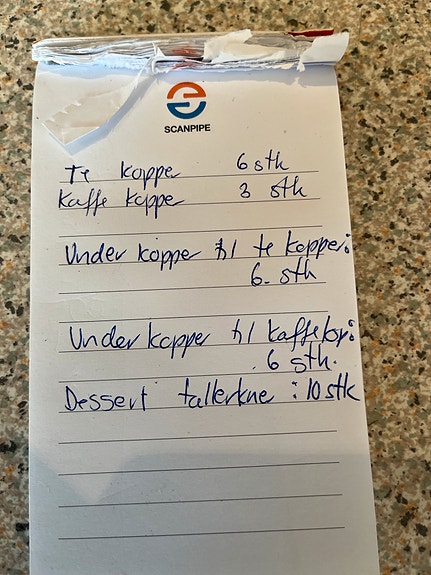 SCANPIPE
Te kopper 6 stk
Kaffe kopper 3 stk
Under kopper til te kopper:
6. stk
Under kopper til kaffekop:
6 stk.
Dessert tallerkne : 10 stk